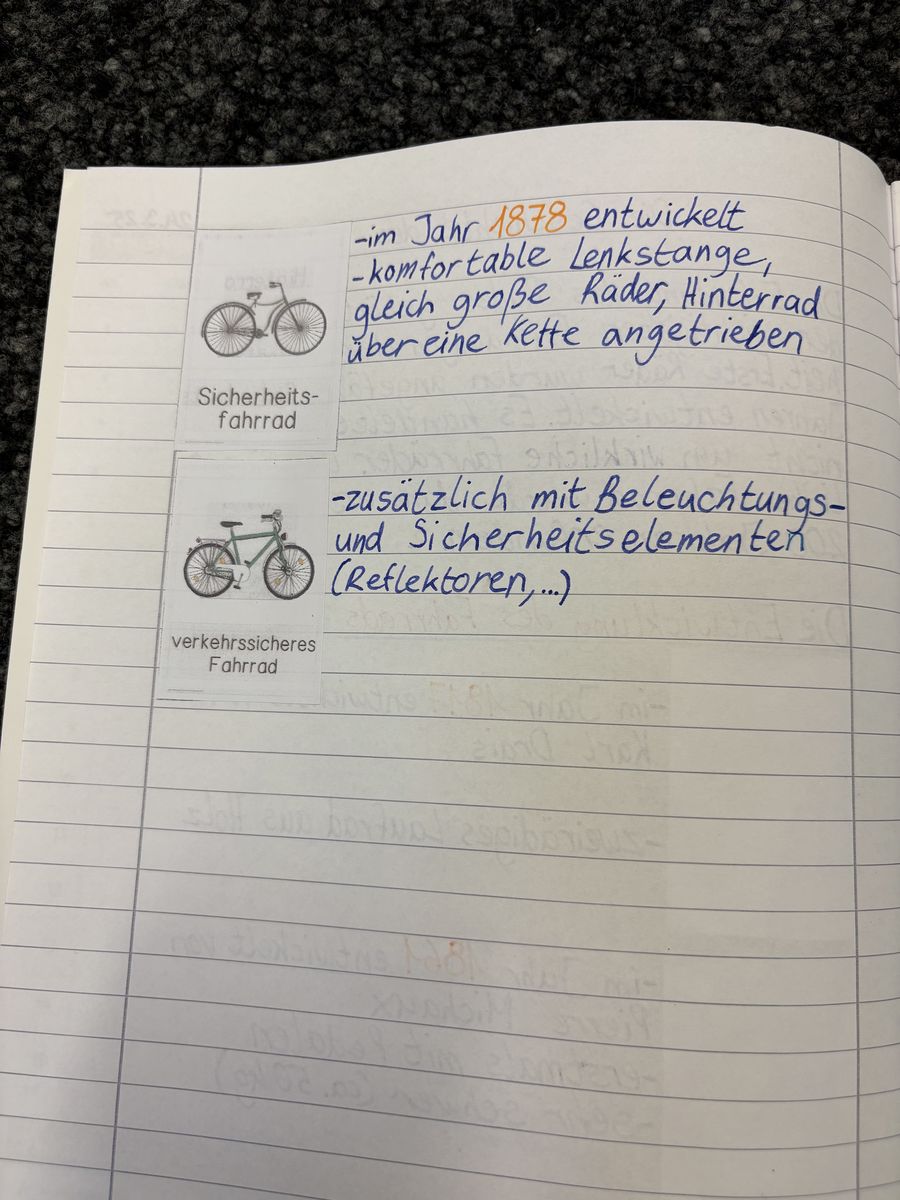 -im Jahr 1878 entwickelt
-komfortable Lenkstange,
gleich große Räder, Hinterrad
über eine Kette angetrieben
Sicherheits-
fahrrad
-zusätzlich mit Beleuchtungs-
und Sicherheitselementen
(Reflektoren,...)
verkehrssicheres
Fahrrad